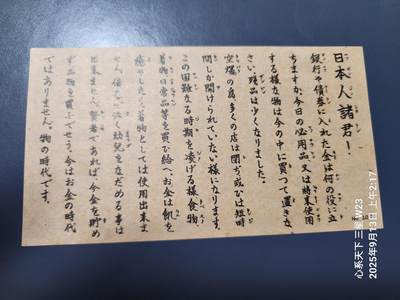 日本人諸君！
銀行や債券に入れた金は何の役に立
ちますか、今日の必用品又は将来使用
する様な物は今の中に買つて置きな
さい。現品は少くなりました。
空爆の爲多くの店は閉ぢ或ひは短時
間しか開けられていない様になります。
この困難なる時期を凌げる様食物、
着物日常品等を買ひ給へ、お金は飢を
癒やしたり着物としては使用出来ま
せん。泣く幼児をなだめる事は
出来ません。賢者であれば、今金を貯め
ず品物を買ふでせう。今はお金の時代
ではありません。物の時代です。
心系天下 三星 W23
2025年9月13日 上午2:17